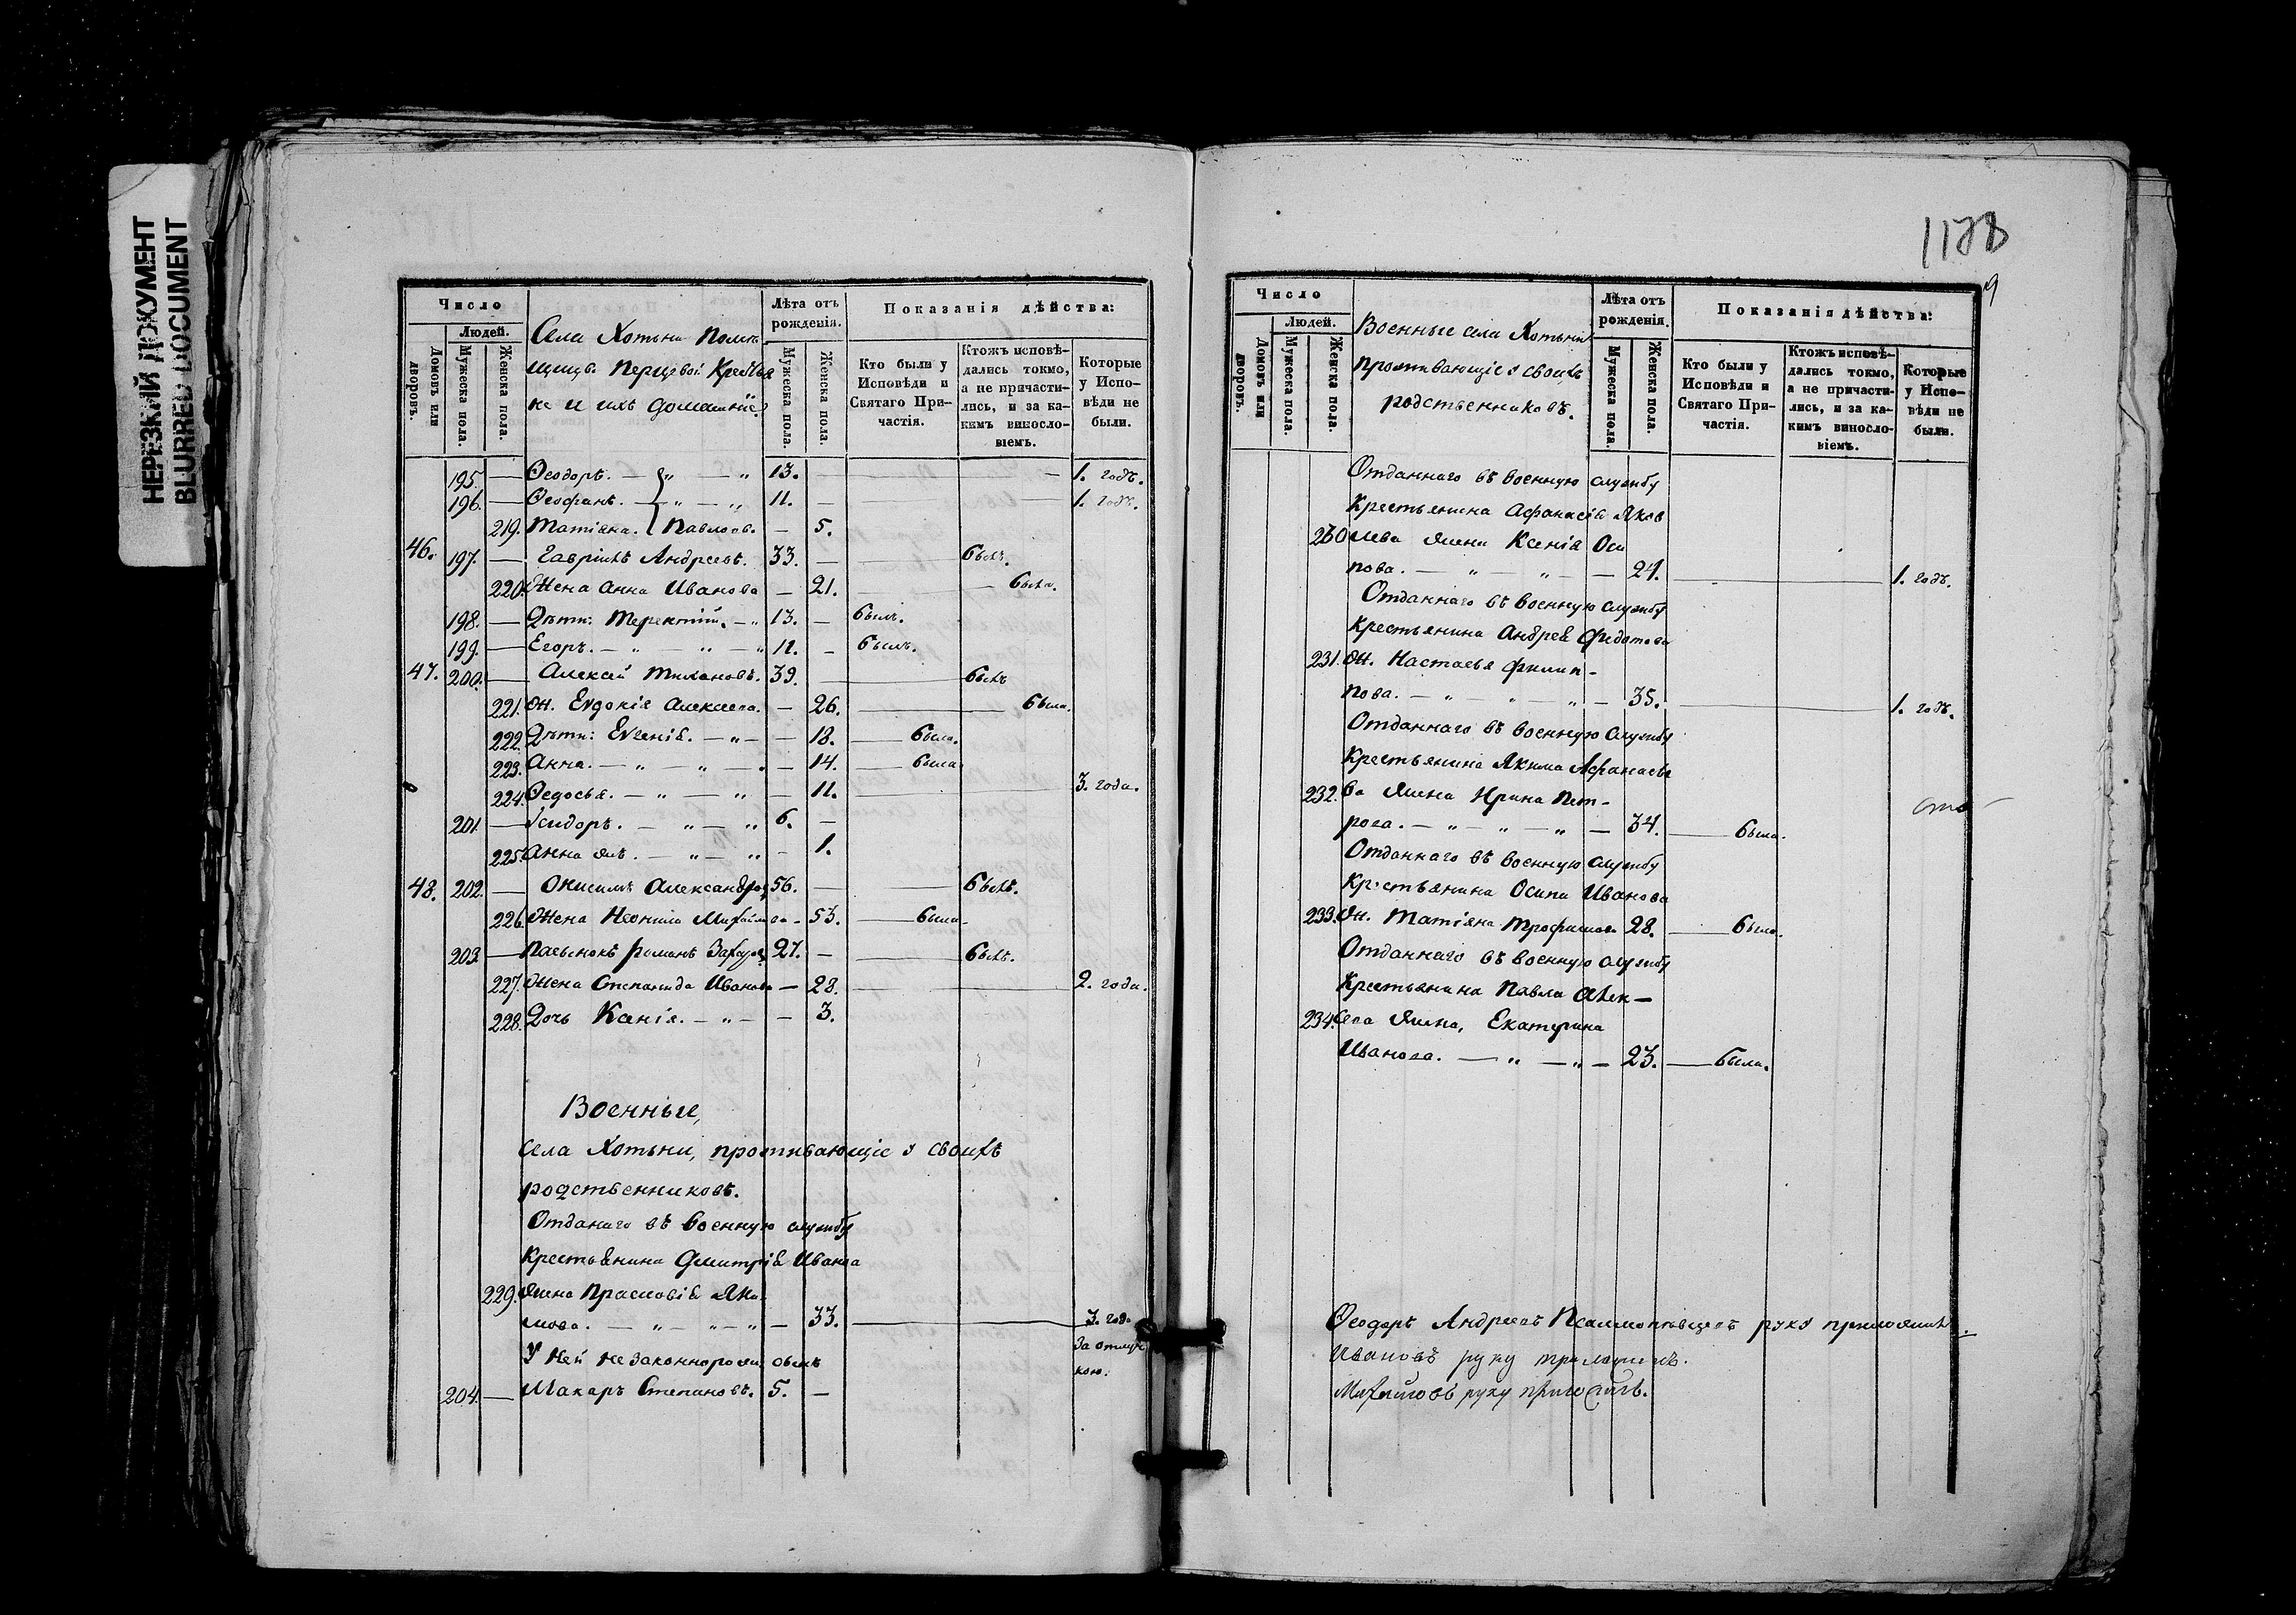 НЕРЕЗКИЙ ДОКУМЕНТ
BLURRED DOCUMENT
Число
Людей.
Домовъ или дворовъ.
Мужеска пола.
Женска пола.
Села Хотыни Помѣ
щицы Перцевой Крестья
не и ихъ домашніе
Лѣта отъ рожденія.
Мужеска пола.
Женска пола.
Показанія дѣйства:
Кто были у Исповѣди и Святаго Причастія.
Ктожъ исповѣдались токмо, а не причастились, и за какимъ винословіемъ.
Которые у Исповѣди не были.
195. — Ѳеодоръ. — „ — „ 13. — 1. годъ.
196. — Ѳеофанъ. — „ — „ 11. — 1. годъ.
219. Татіяна. Павловы. — 5.
46. 197. — Гавріилъ Андреевъ. 33. — былъ.
220. Жена Анна Иванова — 21. — была.
198. — Дѣти: Терентій. — „ 13. — былъ.
199. — Егоръ. — „ — „ — „ 11. — былъ.
47. 200. — Алексей 39. — былъ
221. Ж. Евдокія Алексеева. — 26. — была.
222. Дѣти: Евгенія. — „ — — 18. — была.
223. Анна. — „ — „ — — 14. — была
224. Ѳедосья. — „ — „ — 11. — 3. года.
201. — Исидоръ. — „ — „ 6. —
225. Анна — „ — „ — 1.
48. 202. — Онисимъ Александровъ 56. — былъ.
226. Жена Неонила Михайлова — 53. — была
203. — Пасынокъ Романъ Захаровъ 27. — былъ.
227. Жена Степанида Иванова — 28. — 2. года.
228. Дочь Ксенія. — „ — — 3.
Военные,
Села Хотыни, проживающіе у своихъ
родственниковъ.
Отданаго въ военную службу
Крестьянина Дмитрія Иванова
229. жена Прасковія Яки-
мова. — „ — „ — „ — 33. — 3. года
за отлуч
кою.
У ней незаконнорожд.
204. — Макаръ Степановъ. 5. —
1178
Число
Людей.
Домовъ или дворовъ.
Мужеска пола.
Женска пола.
Военные села Хотыни
проживающіе у своихъ
родственниковъ.
Лѣта отъ рожденія.
Мужеска пола.
Женска пола.
Показанія дѣйства:
Кто были у Исповѣди и Святаго Причастія.
Ктожъ исповѣдались токмо, а не причастились, и за какимъ винословіемъ.
Которые у Исповѣди не были.
Отданнаго въ военную службу
Крестьянина Афанасія Яков
230 лева жена Ксенія Оси
пова. — „ — „ — — 24. — 1. годъ.
Отданнаго въ военную службу
Крестьянина Андрея Федотова
231. Ж. Настасья Филип-
пова. — „ „ — „ — 35. — 1. годъ.
Отданнаго въ военную службу
Крестьянина Якима Афанасье
232. ва жена Ирина Пет-
рова. — „ — „ — „ — 34. — была.
Отданнаго въ военную службу
Крестьянина Осипа Иванова
233. Ж. Татіяна Трофимова 28. — была.
Отданнаго въ военную службу
Крестьянина Павла Алек-
234. жена, Екатерина
Иванова. — „ — „ — 23. — была.
Ѳеодоръ Андреевъ руку приложилъ.
Ивановъ руку приложилъ.
Михайловъ руку приложилъ.